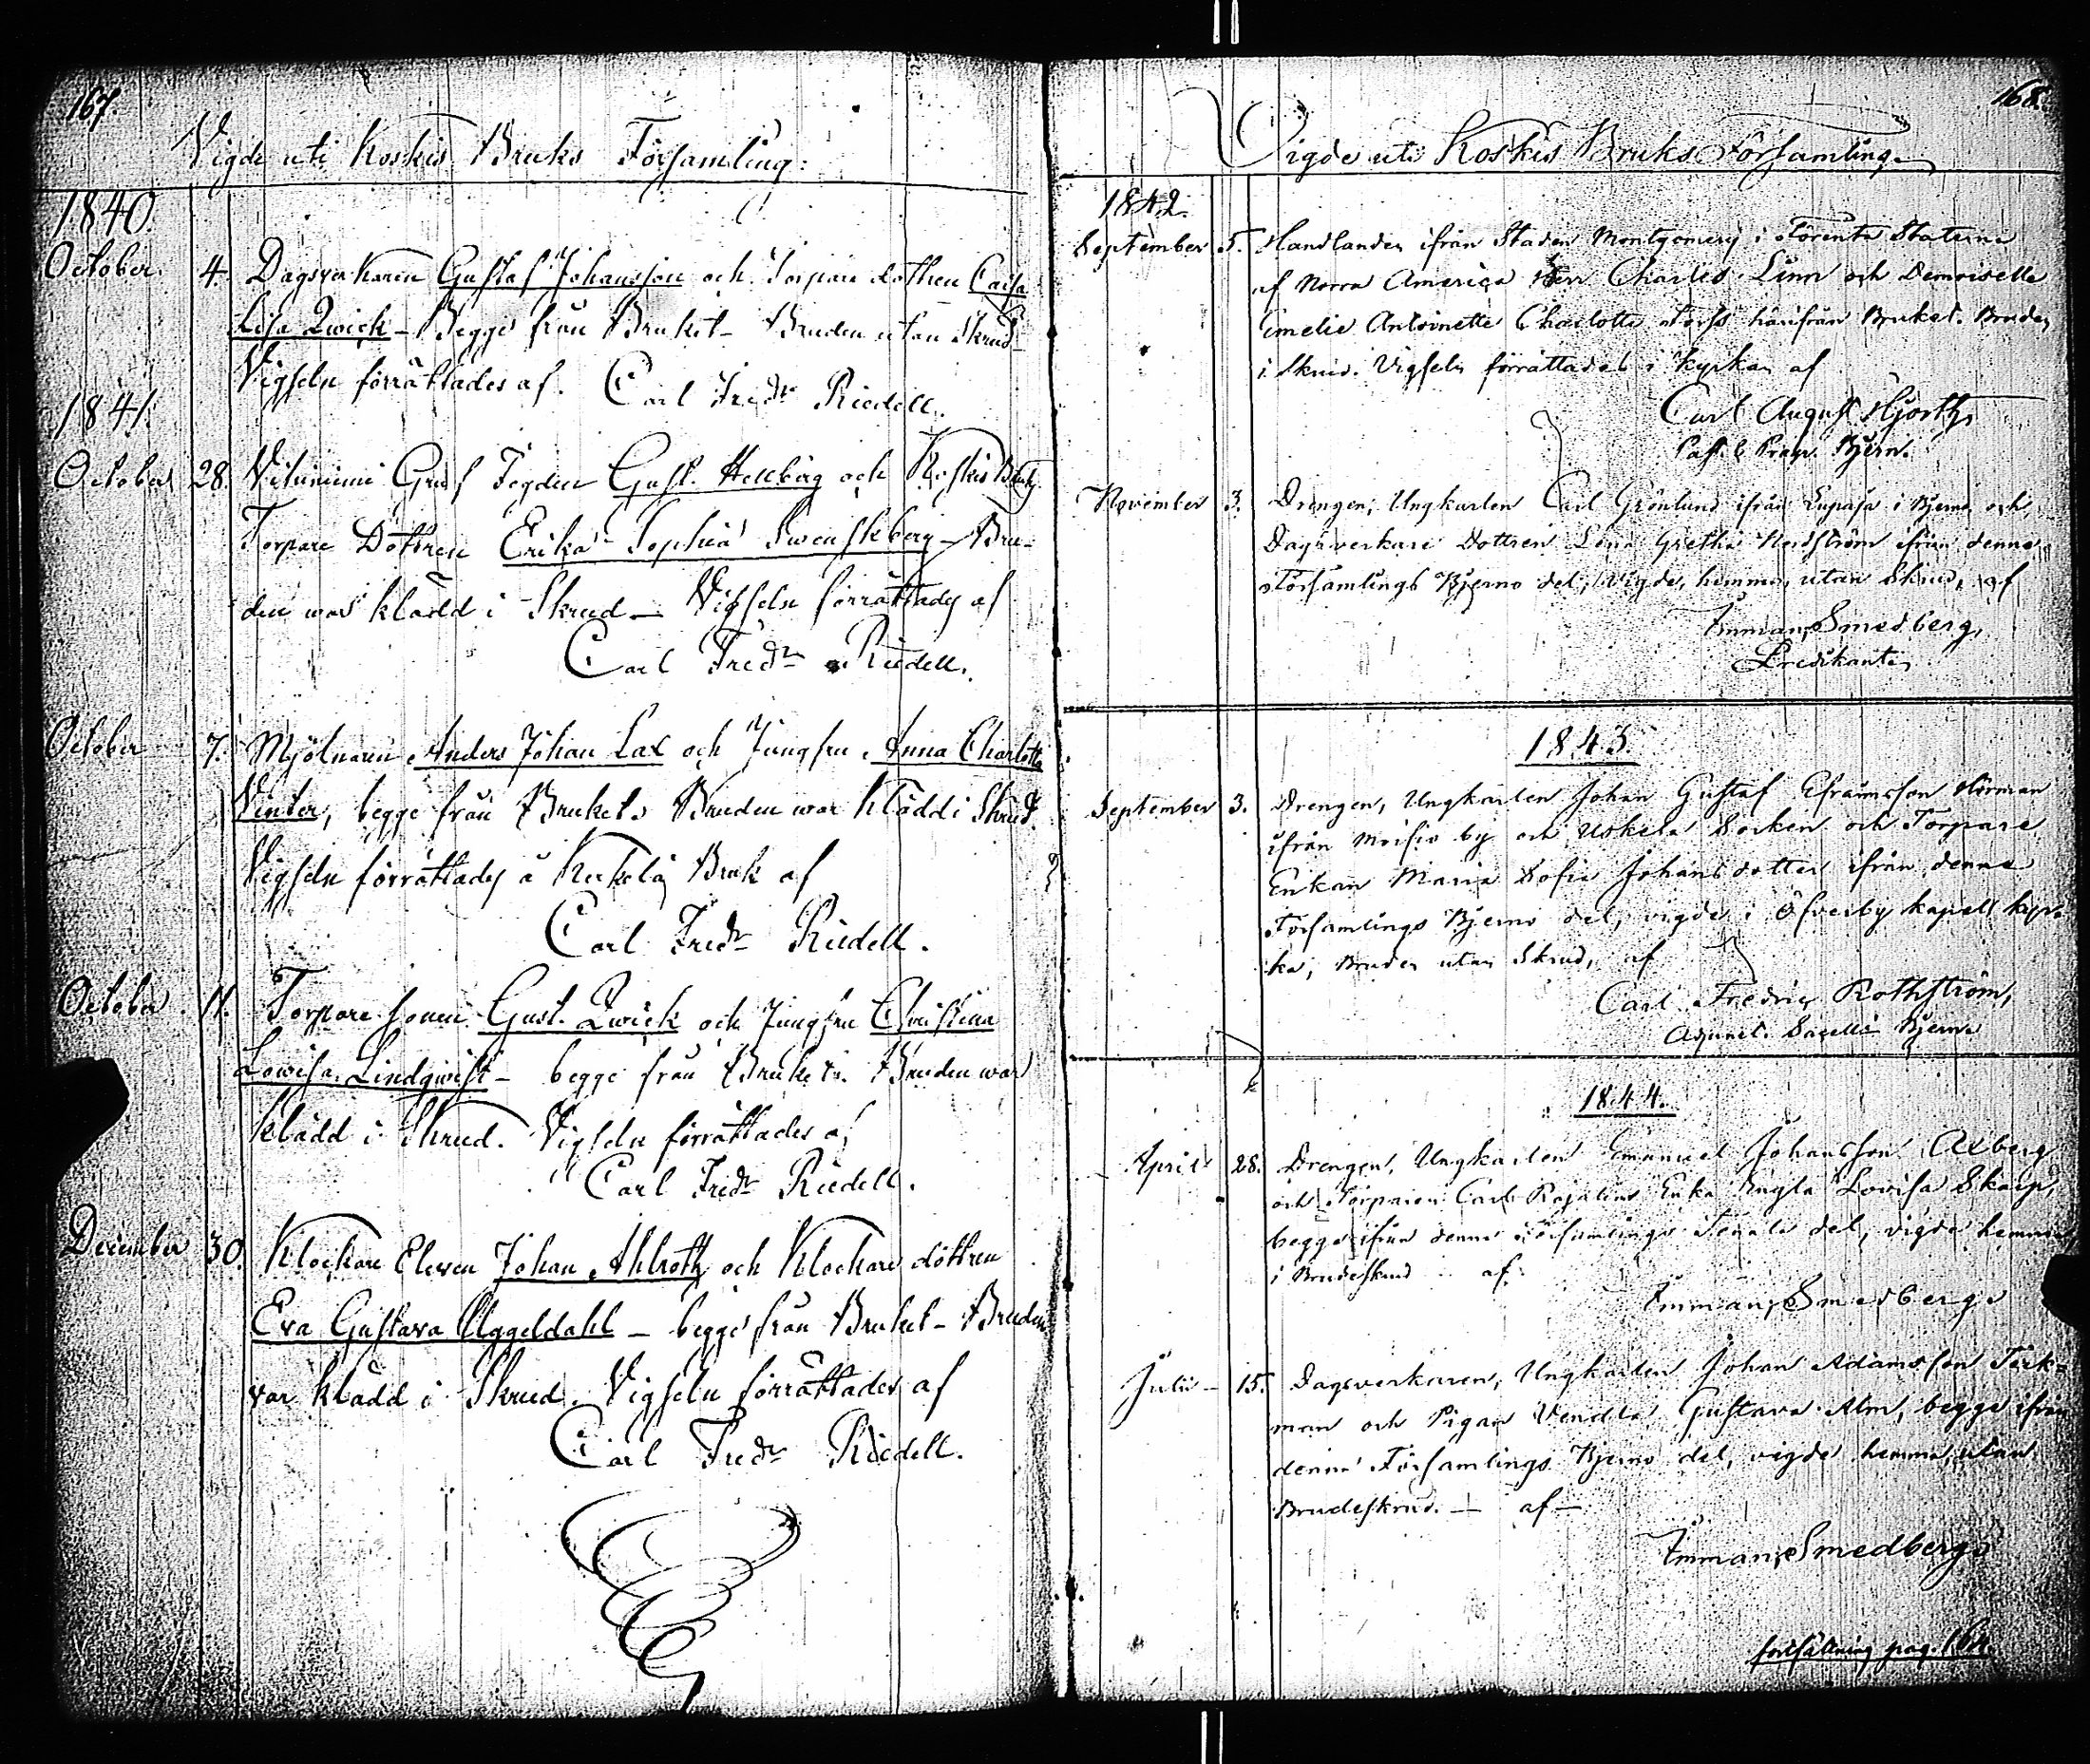 167.
Vigde uti Koskis Bruks Församling:
1840.
October. 4. Dagsverkaren Gustaf Johansson och Torpare dottren Caisa
Lisa Qwick - Begge från Bruket - Bruden utan Skrud -
Vigseln förrättades af. Carl Fredr Riedell.
1841.
October 28. Gust. Hellberg och Koskis Bruks
Torpare Dottren Erika Sophia Swenskberg - Bru-
den war klädd i Skrud - Vigseln förrättades af
Carl Fredr Riedell.
October 7. Mjölnaren Anders Johan Lax och Jungfru Anna Charlotta
Winter, begge från Bruket. Bruden war klädd i Skrud.
Vigseln förrättades å Kirkelä Bruk af
Carl Fredr Riedell.
October 11. Torpare sonen Gust. Qwick och Jungfru Christina
Lowisa Lindqwist - begge från Bruket. Bruden war
klädd i Skrud. Vigseln förrättades af
Carl Fredr Riedell.
December 30. Klockare Eleven Johan Ahlroth och Klockare dottren
Eva Gustava Uggeldahl - begge från Bruket - Bruden
var klädd i Skrud. Vigseln förrättades af
Carl Fredr Riedell.
168.
Vigde uti Koskis Bruks Församling.
1842.
September 5. Handlanden ifrån Staden Montgomery i Förenta Staterna
af Norra America Herr Charles Linn och Demoiselle
Emelie Antoinette Charlotte Forss härifrån Bruket. Bruden
i Skrud. Vigseln förrättades i Kyrkan af
Carl August Hjorth,
Past. & Præp. Bjern.
November 3. Drengen, Ungkarlen Carl Grönlund ifrån Lupaja i Bjerno och
Dagsverkare Dottren Lena Gretha Nordström ifrån denna
Församlings Bjerno del, Vigde, hemma, utan Skrud, af
Imman. Smedberg,
Predikant.
1843.
September 3. Drengen, Ungkarlen Johan Gustaf Efraimsson Hörman
ifrån Moisio by och Uskela Socken och Torpare
Enkan Maria Sofia Johansdotter ifrån denna
Församlings Bjerno del, vigde i Öfverby kapell kyr-
ka, Bruden utan Skrud, af
Carl Fredric Rothström,
Adjunct. Sacell: Bjerno
1844.
April 28. Drengen, Ungkarlen Emanuel Johansson Alberg
och Torparen Carl Rajalins Enka Engla Lovisa Skarp,
begge ifrån denna Församlings Tenala del, vigde hemma
i Brudeskrud af
Imman. Smedberg.
Julii 15. Dagsverkaren, Ungkarlen Johan Adamsson Törk-
man och Pigan Vendla Gustava Alm, begge ifrån
denna Församlings Bjerno del, vigde hemma, utan
Brudeskrud. - af -
Imman. Smedberg.
fortsättning pag. 164.